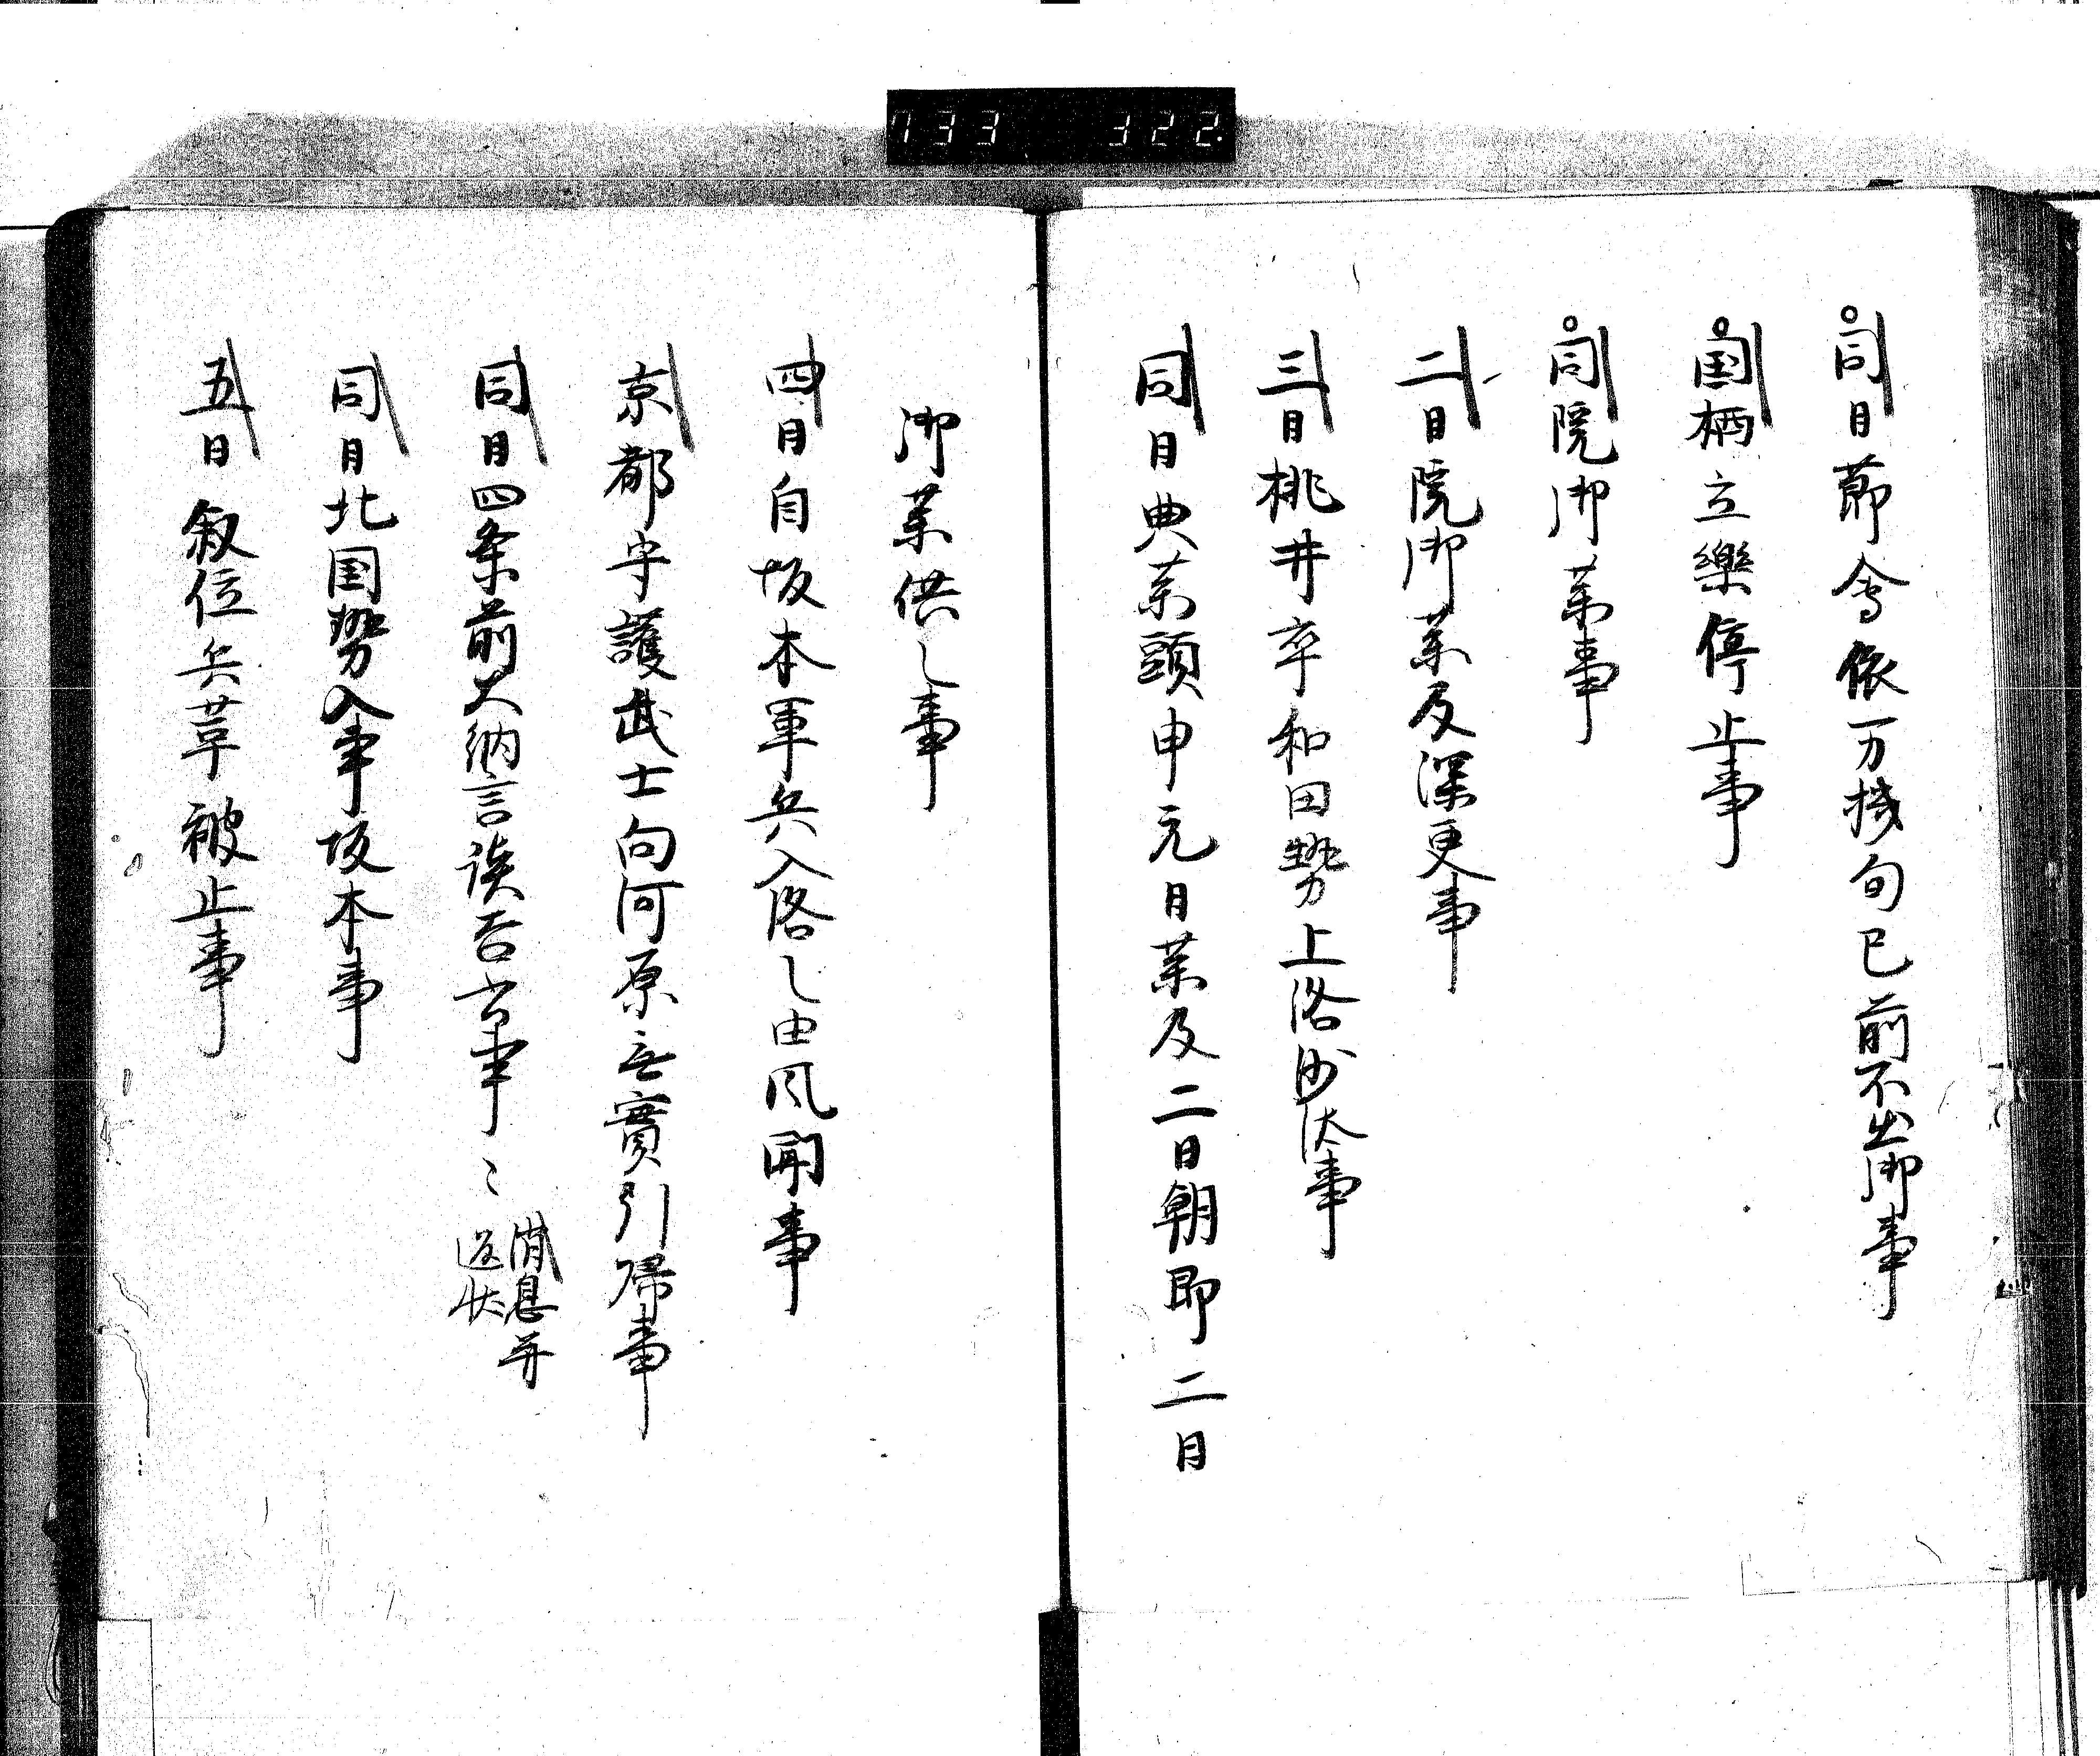 733 322
同日節會依一万機旬已前不出御事
国栖立樂停止事
同院御薬事
二日院御薬及深更事
三日桃井卒和田勢上洛沙汰事
同日典薬頭申元日薬及二日朝即二日
御薬供之事
四日自坂本軍兵入洛之由風聞事
京都守護武士向河原无實引帰事
同日四条前大納言談吞事
消息并
返状
同日北国勢入事坂本事
五日叙位兵革被止事